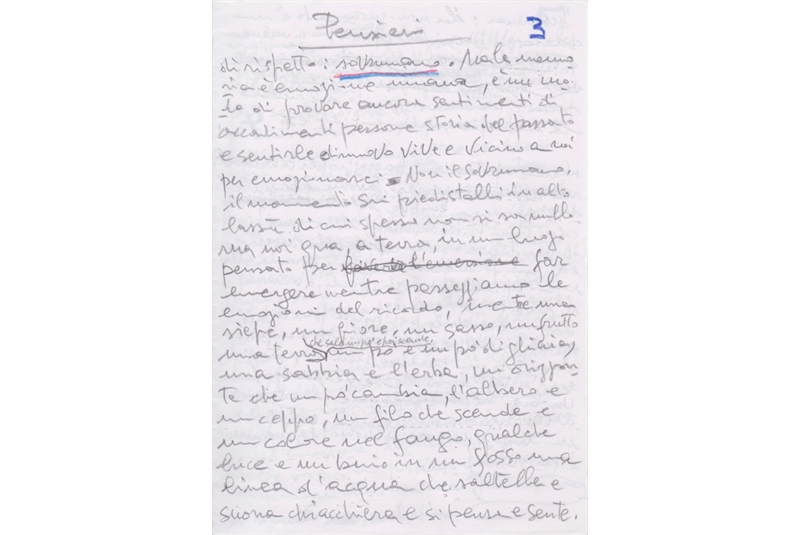 Pensieri 3
di rispetto: sovrumano. Ma la memo-
ria è emozione umana, è un mo-
to di provare ancora sentimenti di
accadimenti persone storia del passato
e sentirle di nuovo vive e vicino a noi
per emozionarci. Non il sovrumano,
il monumento sui piedistalli in alto
lassù di cui spesso non si sa nulla
ma noi qua, a terra, in un luogo
pensato per far
emergere mentre passeggiamo le
emozioni del ricordo, mentre una
siepe, un fiore, un sasso, un frutto
che sale un po' e poi scende,
una terra, un po' e un po' di ghiaia,
una sabbia e l'erba, un orizzon-
te che un po' cambia, l'albero e
un ceppo, un filo che scende e
un colore nel fango, qualche
luce e un buio in un fosso una
linea d'acqua che saltella e
suona chiacchiera e si pensa e sente.